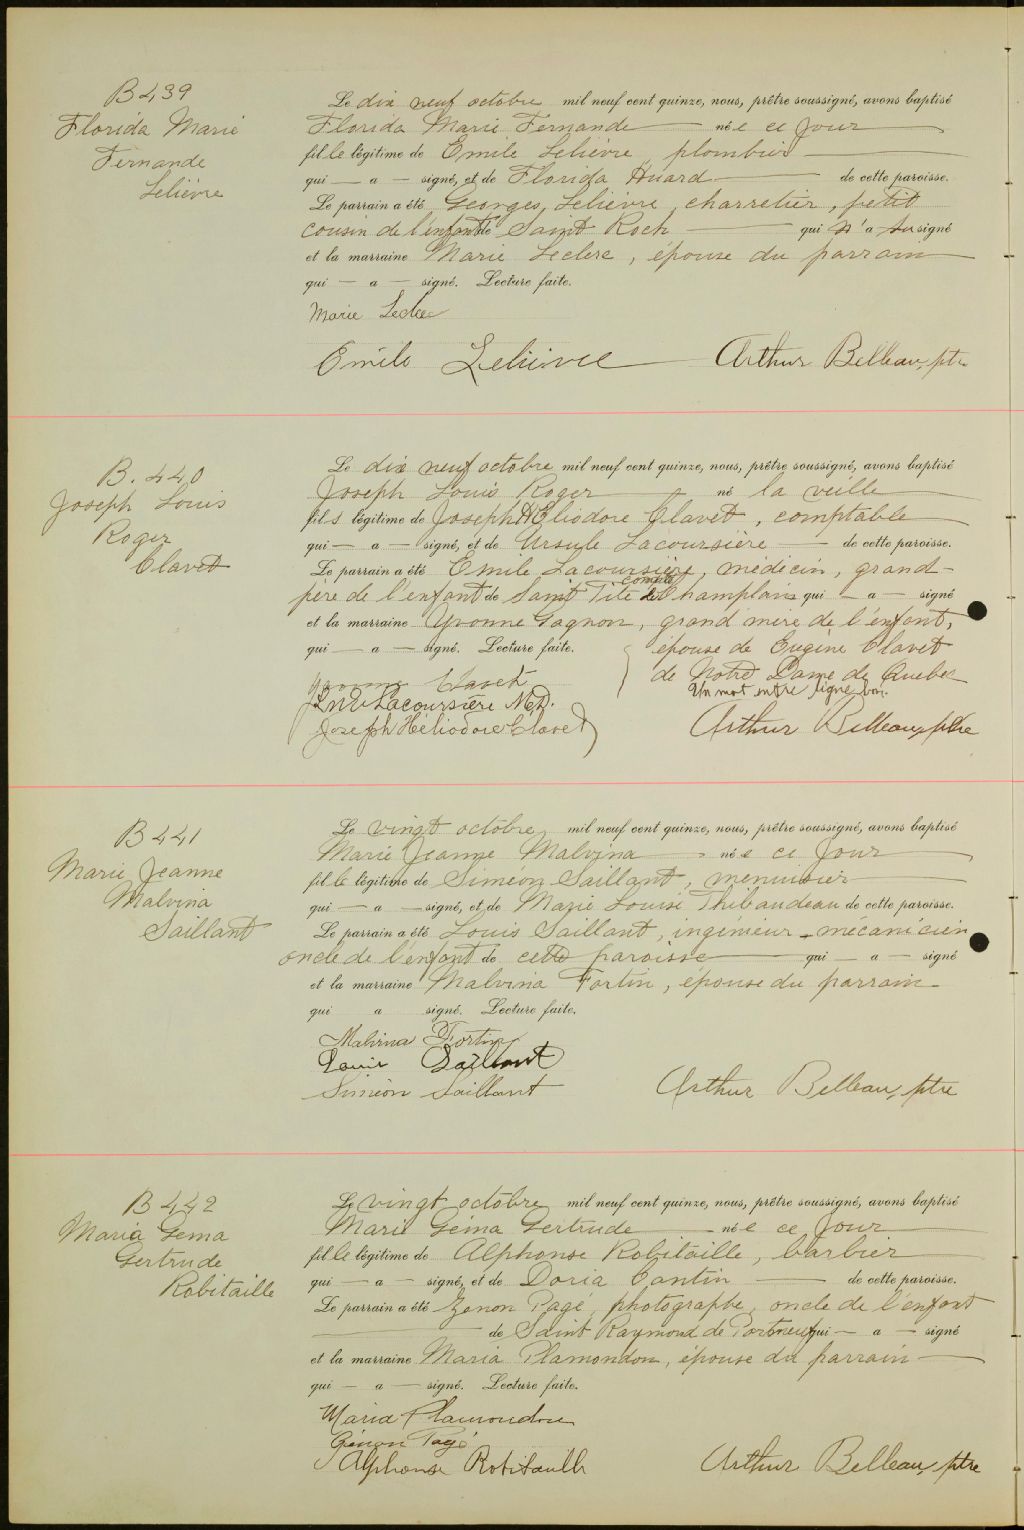 B 439
Florida Marie
Fernande
Lelièvre
Le dix neuf octobre mil neuf cent quinze, nous, prêtre soussigné, avons baptisé
Florida Marie Fernande — née ce jour —
fille légitime de Emile Lelièvre, plombier —
qui — a — signé, et de Florida Huard — de cette paroisse.
Le parrain a été Georges Lelièvre, charretier, petit
cousin de l'enfant de Saint Roch — qui n'a su signé
et la marraine Marie Leclerc, épouse du parrain —
qui — a — signé. Lecture faite.
Marie Leclerc
Emile Lelièvre — Arthur Belleau, ptre
B. 440
Joseph Louis
Roger
Clavet
Le dix neuf octobre mil neuf cent quinze, nous, prêtre soussigné, avons baptisé
Joseph Louis Roger — né la veille —
fils légitime de Joseph Héliodore Clavet, comptable —
qui — a — signé, et de Ursule Lacoursière — de cette paroisse.
Le parrain a été Emile Lacoursière, médecin, grand-
père de l'enfant de Saint Tite comté de Champlain qui — a — signé
et la marraine Yvonne Gagnon, grand'mère de l'enfant,
qui — a — signé. Lecture faite. épouse de Eugène Clavet
de Notre Dame de Quebec
Un mot entre ligne bon.
Yvonne Clavet
Lacoursière M.D.
Joseph Héliodore Clavet
Arthur Belleau, ptre
B 441
Marie Jeanne
Malvina
Saillant
Le vingt octobre mil neuf cent quinze, nous, prêtre soussigné, avons baptisé
Marie Jeanne Malvina — née ce jour —
fille légitime de Siméon Saillant, menuisier —
qui — a — signé, et de Marie Louise Thibaudeau de cette paroisse.
Le parrain a été Louis Saillant, ingénieur-mécanicien
oncle de l'enfant de cette paroisse — qui — a — signé
et la marraine Malvina Fortin, épouse du parrain —
qui a signé. Lecture faite.
Malvina Fortin
Louis Saillant
Siméon Saillant
Arthur Belleau, ptre
B 442
Maria Gema
Gertrude
Robitaille
Le vingt octobre mil neuf cent quinze, nous, prêtre soussigné, avons baptisé
Marie Géma Gertrude — née ce jour —
fille légitime de Alphonse Robitaille, barbier
qui — a — signé, et de Doria Cantin — de cette paroisse.
Le parrain a été Zenon Pagé, photographe, oncle de l'enfant
— de Saint Raymond de Portneuf qui — a — signé
et la marraine Maria Plamondon, épouse du parrain —
qui — a — signé. Lecture faite.
Maria Plamondon
Génon Pagé
Alphonse Robitaille
Arthur Belleau, ptre